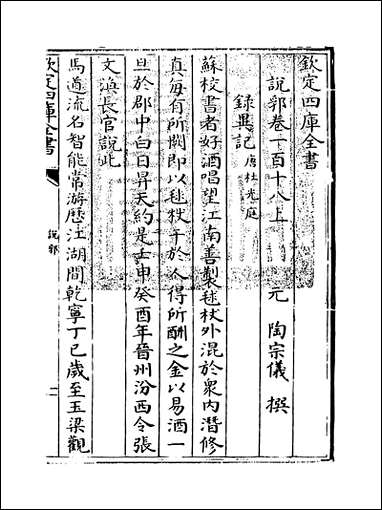 欽定四庫全書
說郛卷一百十八上
元 陶宗儀 撰
錄異記 唐杜光庭
蘇校書者好酒唱望江南善製毬杖外混於衆內潛修
真每有所闕即以毬杖干於人得所酬之金以易酒一
旦於郡中白日昇天約是壬申癸酉年晉州汾西令張
文渙長官說此
馬道流名智能常游歷江湖間乾寧丁巳歲至玉梁觀
欽定四庫全書
說郛